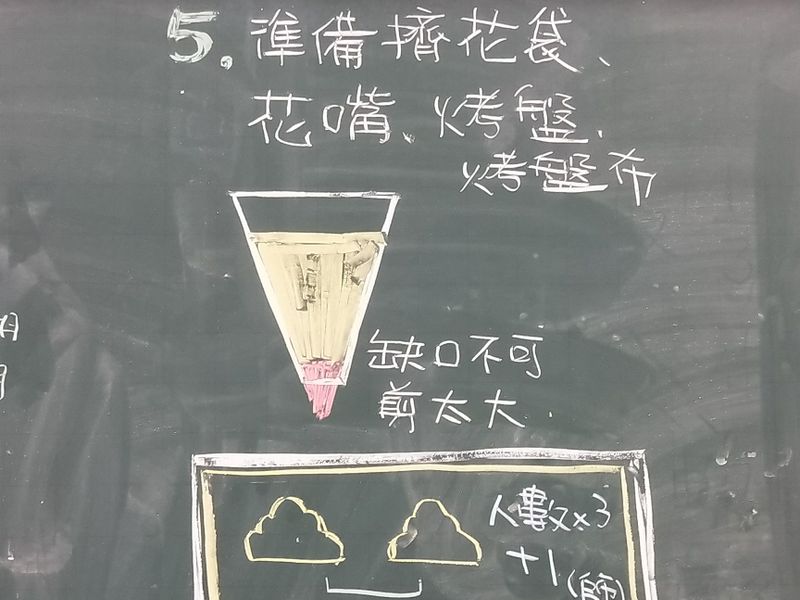 5. 準備擠花袋、
花嘴、烤盤、
烤盤布
缺口不可
剪太大.
人數x3
+1(師)